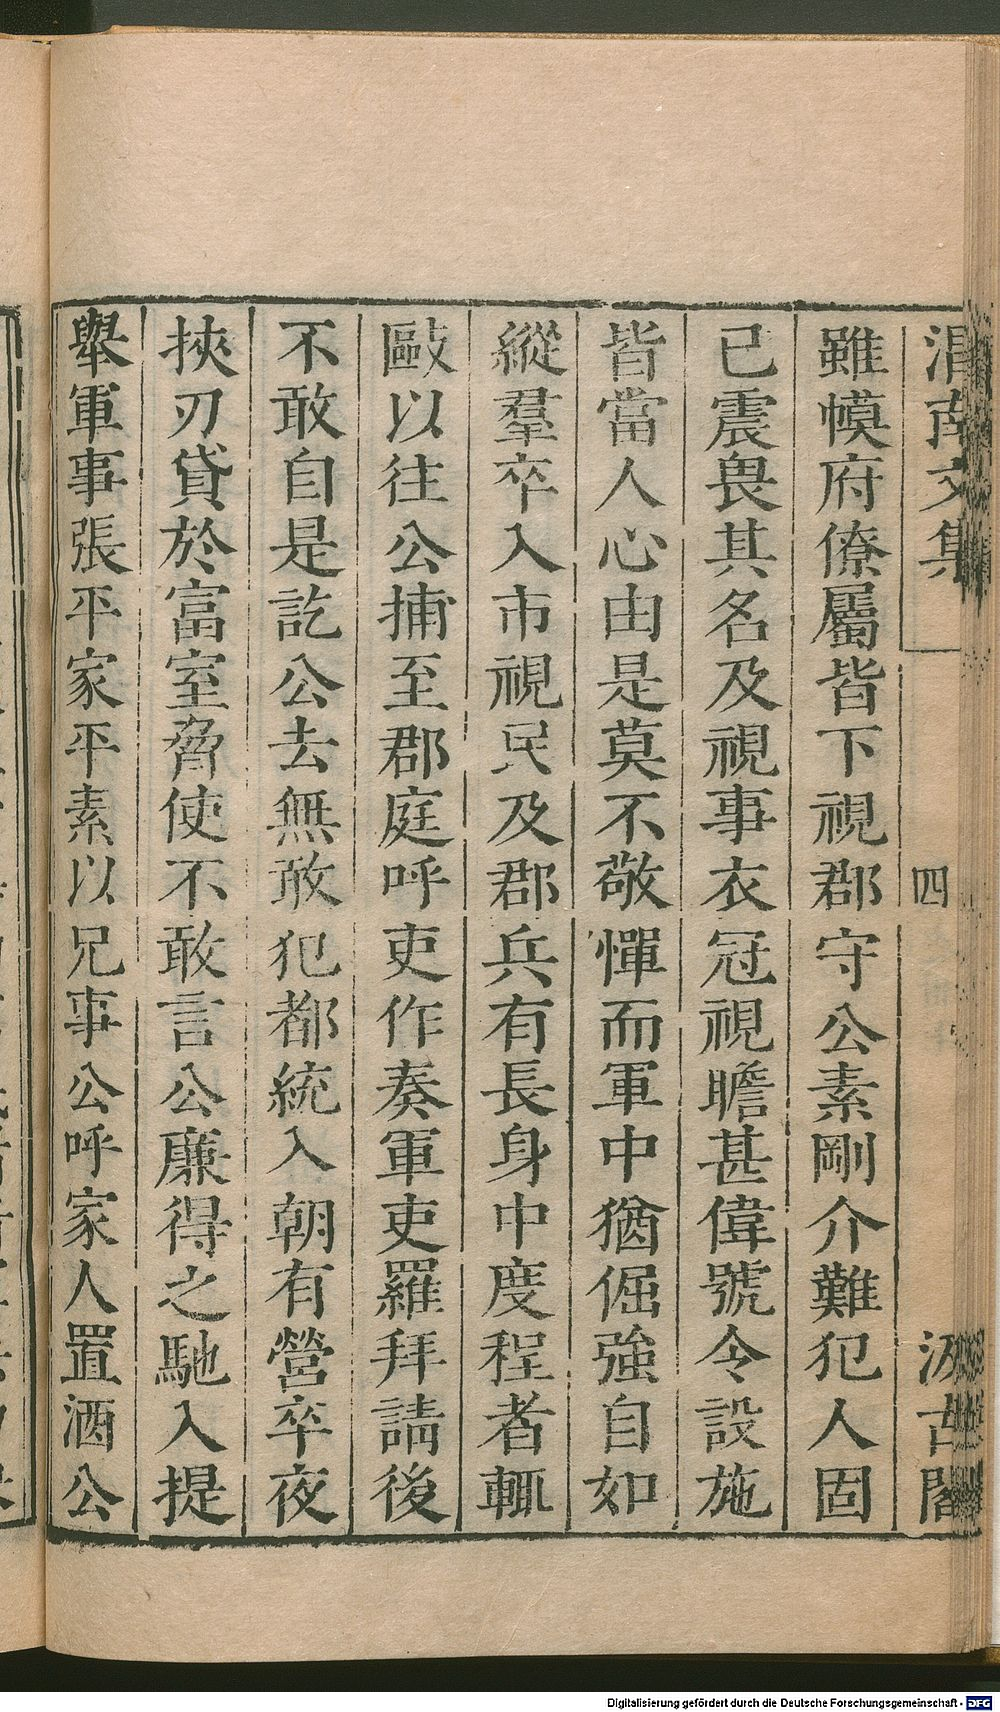 渭南文集
四
汲古閣
雖幙府僚屬皆下視郡守公素剛介難犯人固
已震畏其名及視事衣冠視瞻甚偉號令設施
皆當人心由是莫不敬憚而軍中猶倔強自如
縱羣卒入市視民及郡兵有長身中度程者輒
毆以往公捕至郡庭呼吏作奏軍吏羅拜請後
不敢自是訖公去無敢犯都統入朝有營卒夜
挾刃貸於富室脅使不敢言公廉得之馳入提
舉軍事張平家平素以兄事公呼家人置酒公
Digitalisierung gefördert durch die Deutsche Forschungsgemeinschaft - DFG